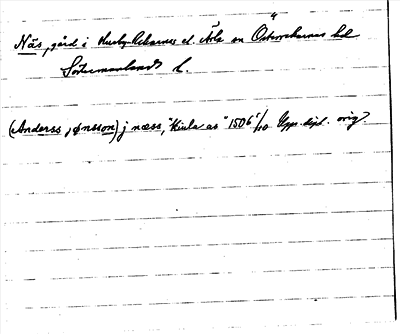 Näs, gård i Husby-Rekarne el. Näs en Österrekarnes hd
Södermanlands l.
(Anderss jönsson) j næss, "Kiula as" 1506 1/10 Upps. dipl. orig.